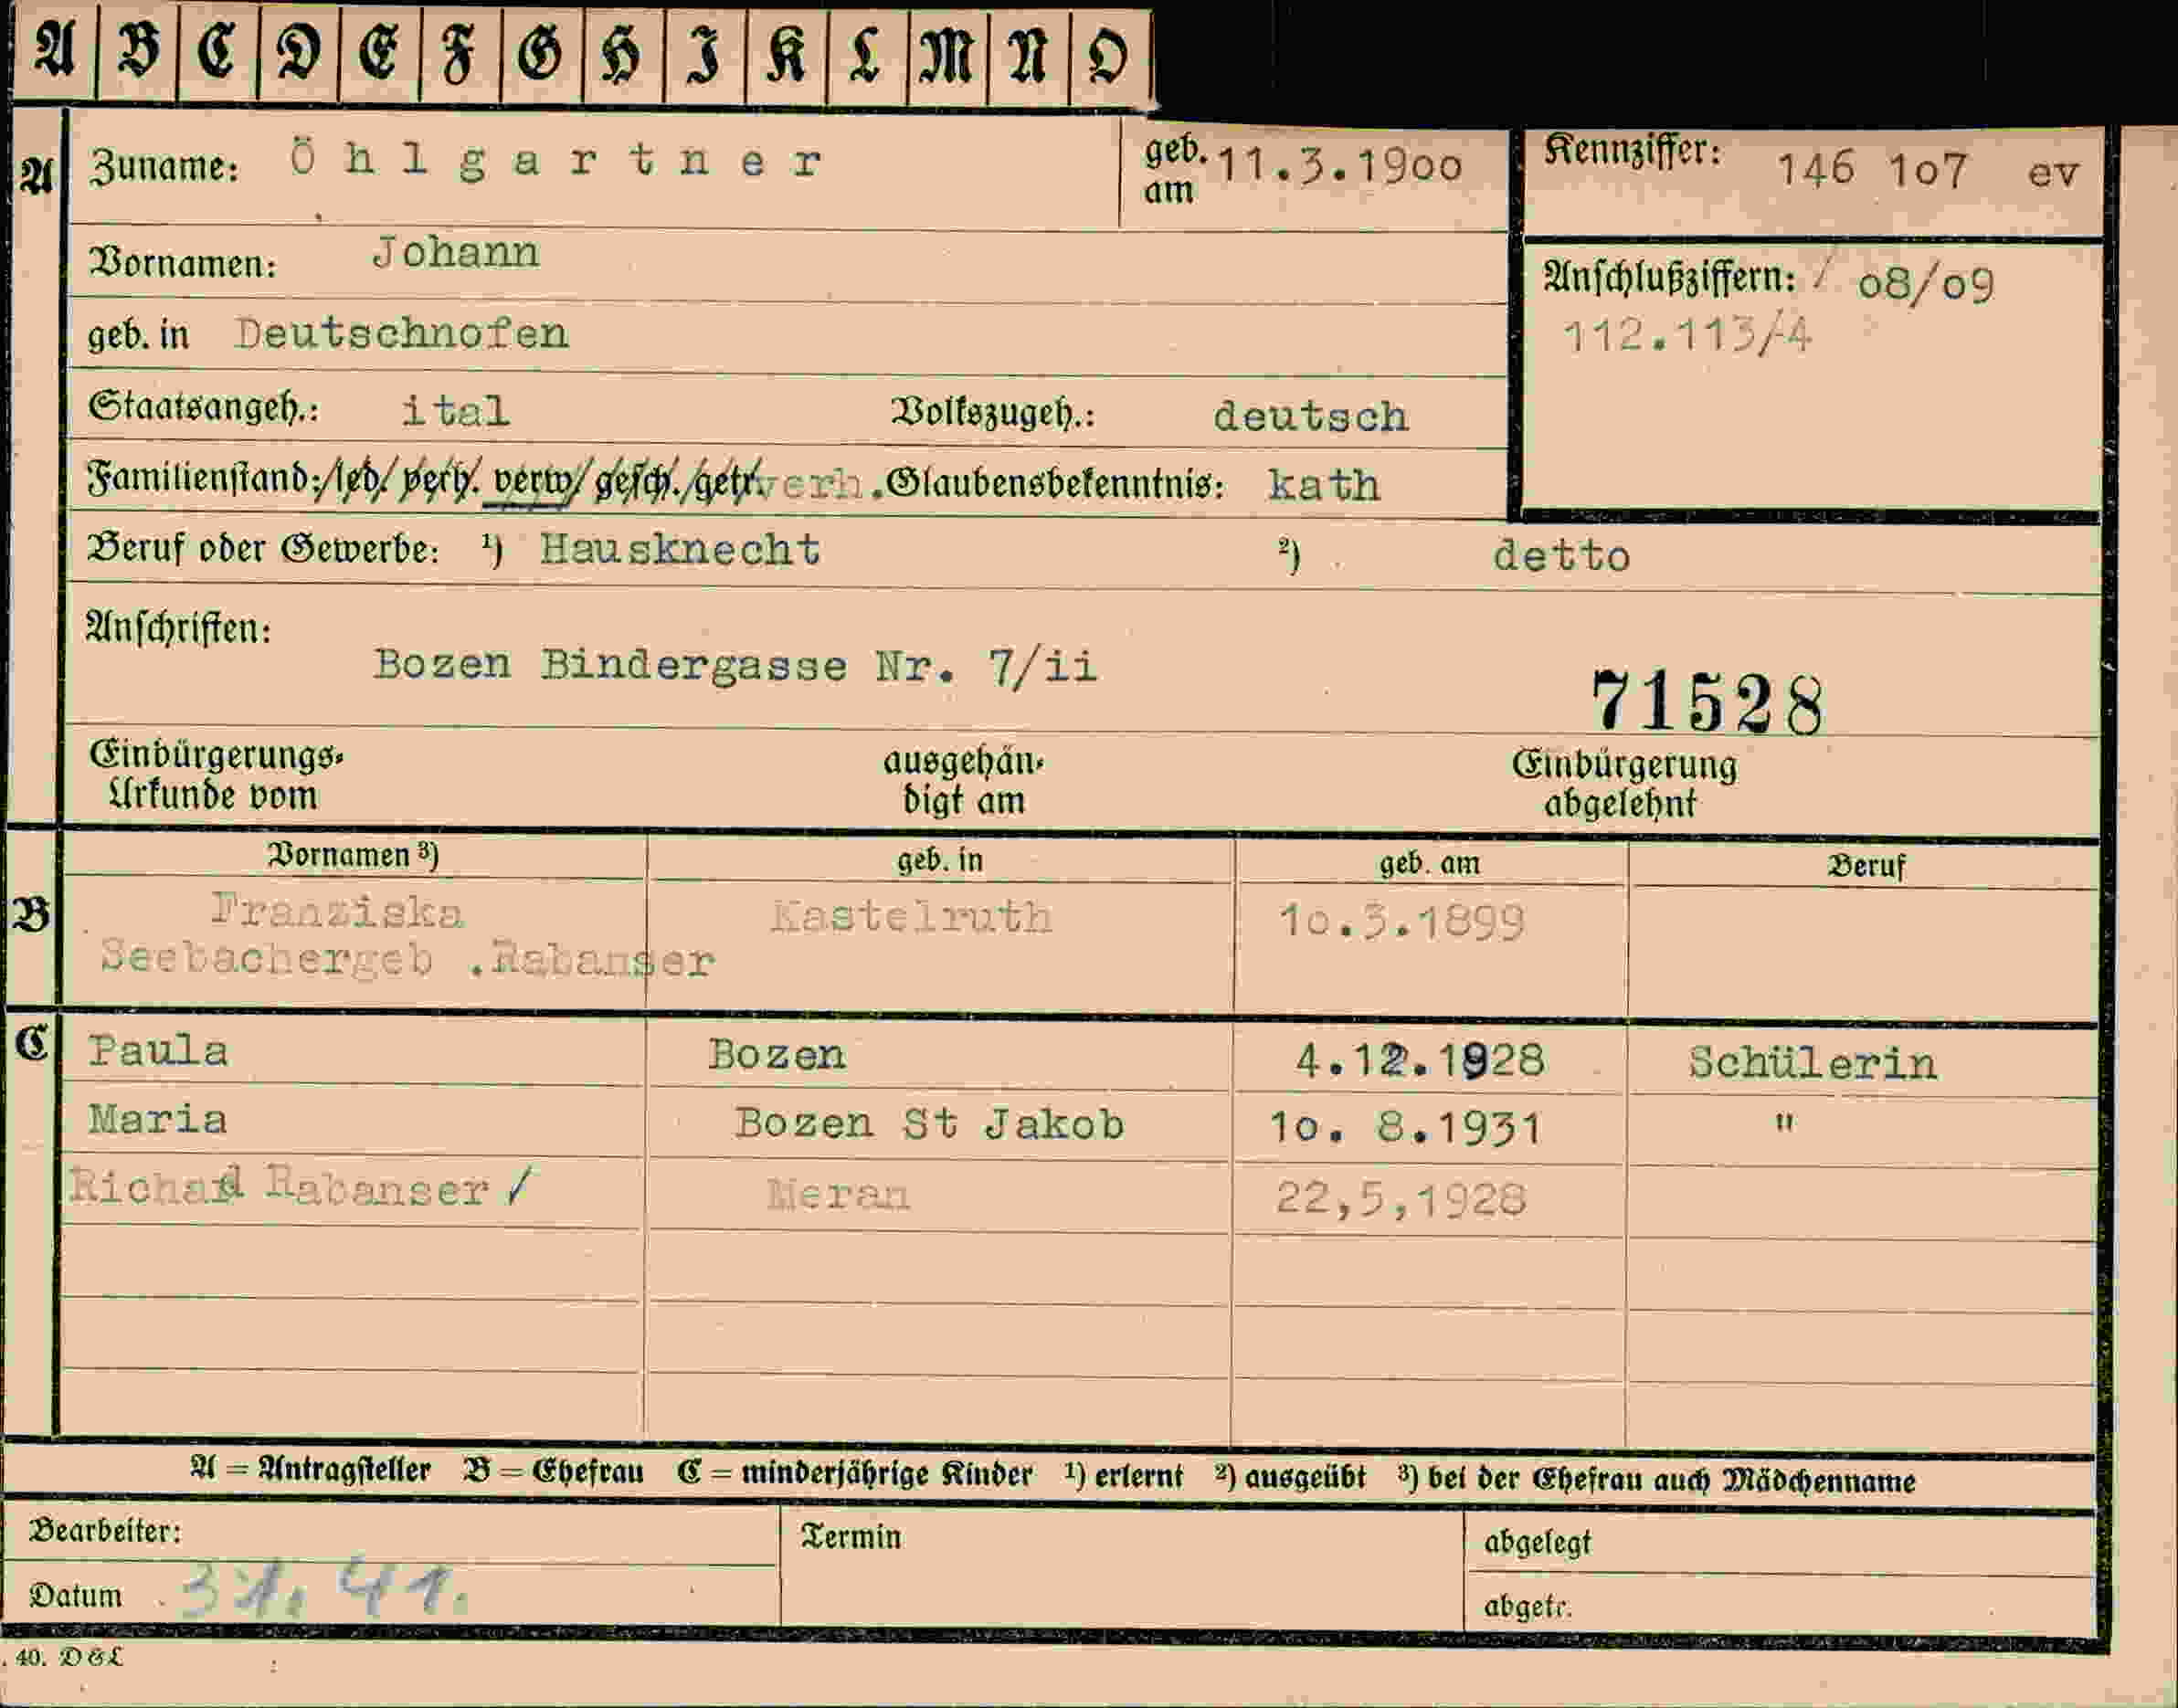 A B C D E F G H I K L M N O
A Zuname: Öhlgartner geb. am 11.3.1900 Kennziffer: 146 107 ev
Vornamen: Johann Anschlußziffern: / 08/09
geb. in Deutschnofen 112.113/4
Staatsangeh.: ital Volkszugeh.: deutsch
Familienstand: led. verh. verw. gesch. getr. verh. Glaubensbekenntnis: kath
Beruf oder Gewerbe: ¹) Hausknecht ²) detto
Anschriften:
Bozen Bindergasse Nr. 7/ii
71528
Einbürgerungs- ausgehän- Einbürgerung
Urkunde vom digt am abgelehnt
Vornamen ³) geb. in geb. am Beruf
B Franziska Kastelruth 10.3.1899
Seebachergeb .Rabanser
C Paula Bozen 4.12.1928 Schülerin
Maria Bozen St Jakob 10. 8.1931 "
Richad Rabanser / Meran 22,5,1928
A = Antragsteller B = Ehefrau C = minderjährige Kinder ¹) erlernt ²) ausgeübt ³) bei der Ehefrau auch Mädchenname
Bearbeiter: Termin abgelegt
Datum 41. abgetr.
. 40. D & L